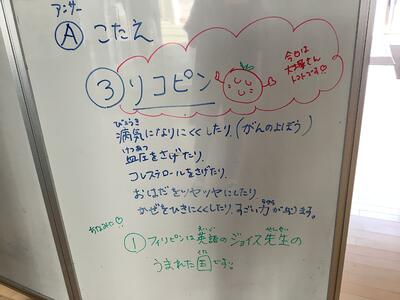 アンサー
Ⓐ こたえ
③ リコピン
今日は
大塚さん
トマトです♡
びょうき
病気になりにくくしたり、(がんのよぼう)
けつあつ
血圧をさげたり、
コレステロールをさげたり、
おはだをツヤツヤにしたり
かぜをひきにくくしたり、すごい力があります。
ちなみに♡
えいご せんせい
① フィリピンは英語のジョイス先生の
くに
うまれた国です!!